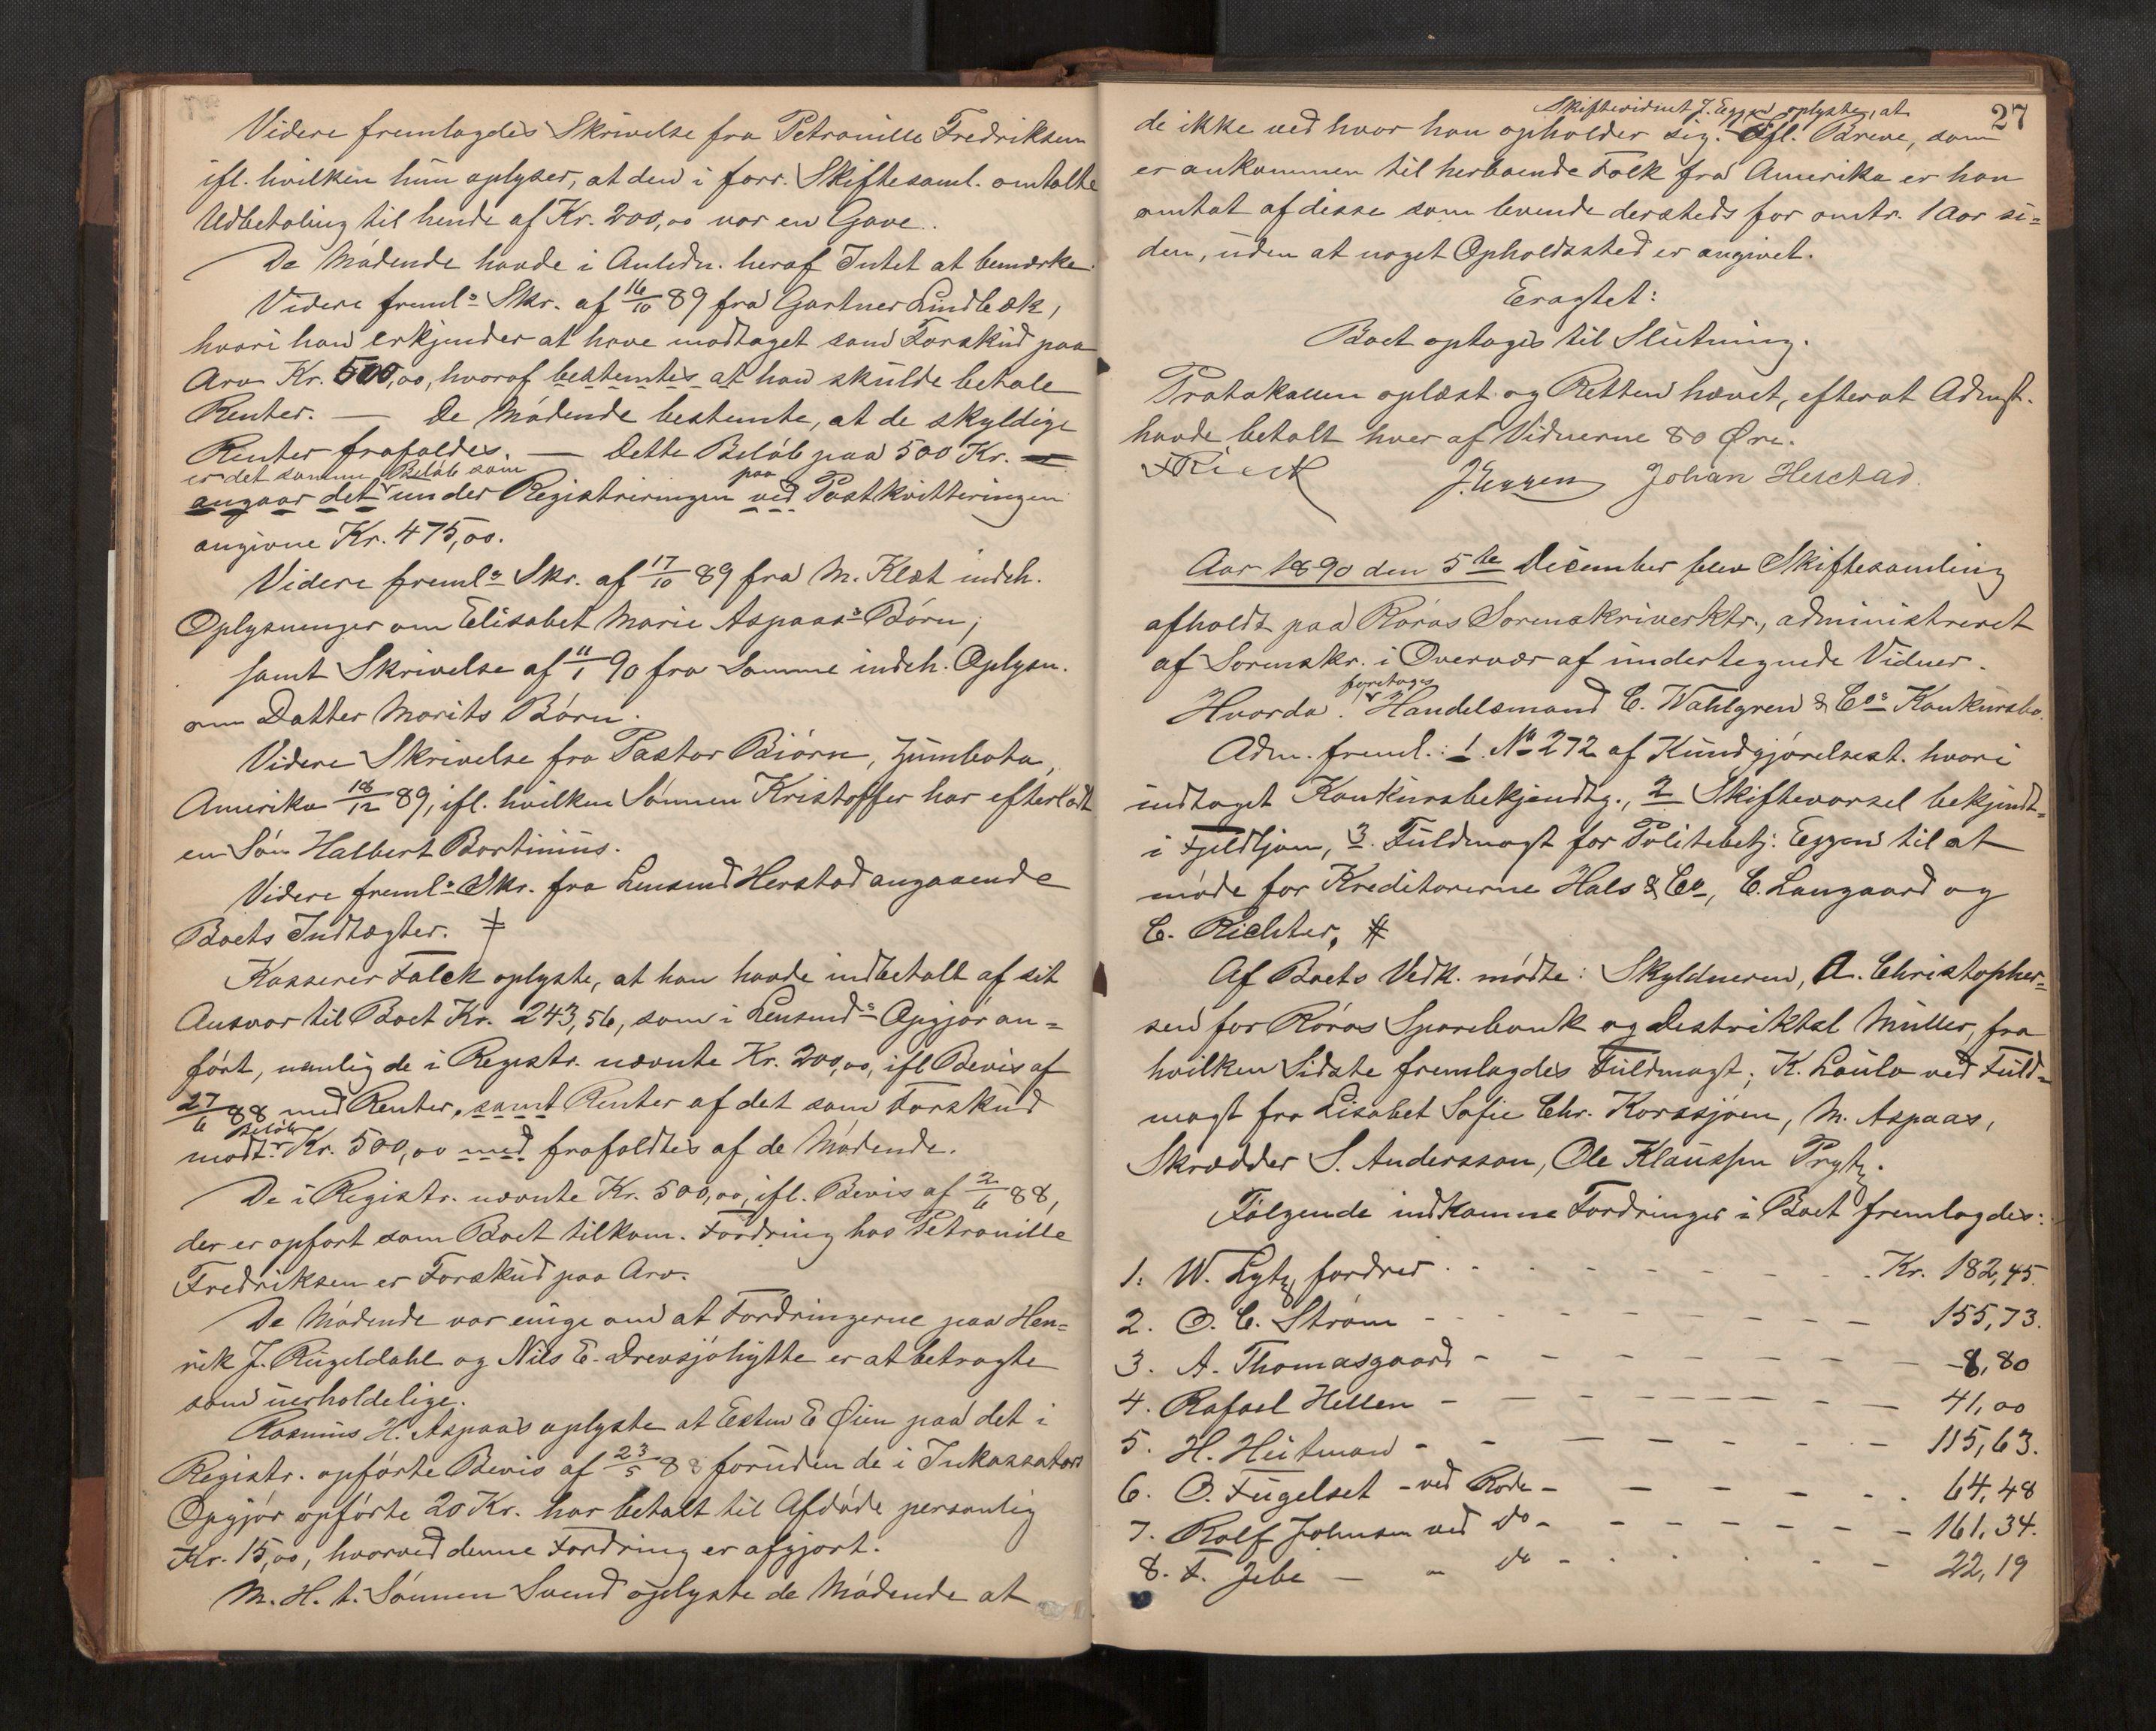 Videre fremlagdes Skrivelse fra Petronille Fredriksen
ifl. hvilken hun oplyser, at den i forr. Skiftesaml. omtalte
Udbetaling til hende af Kr. 200,00 var en Gave.
De Mødende havde i Anledn. heraf Intet at bemærke.
Videre freml. Skr. af 16/10 89 fra Gartner Lindbæk,
hvori han erkjender at have modtaget som Forskud paa
Arv Kr. 500,00, hvoraf bestemtes at han skulde betale
Renter. — De Mødende bestemte, at de skyldige
Renter frafaldes. — Dette Beløb paa 500 Kr.
er det samme Beløb som paa
angaar det under Registreringen ved Postkvitteringen
angivne Kr. 475,00.
Videre freml. Skr. af 17/10 89 fra M. Klæt indeh.
Oplysninger om Elisabet Marie Aspaas's Børn;
samt Skrivelse af 11/1 90 fra Samme indeh. Oplysn.
om Datter Marits Børn.
Videre Skrivelse fra Pastor Biørn, Zumbota,
Amerika 18/12 89, ifl. hvilken Sønnen Kristoffer har efterladt
en Søn Halbert Bortinius.
Videre freml. Skr. fra Lensmd Herstad angaaende
Boets Indtægter. ǂ
Kasserer Falck oplyste, at han havde indbetalt af sit
Ansvar til Boet Kr. 243,56, som i Lensmds Opgjør an=
ført, nemlig de i Registr. nævnte Kr. 200,00, ifl Bevis af
27/6 88 med Renter, samt Renter af det som Forskud
Beløb
modt. Kr. 500,00 med frafaldtes af de Mødende.
De i Registr. nævnte Kr. 500,00, ifl. Bevis af 2/6 88,
der er opført som Boet tilkom. Fordring hos Petronille
Fredriksen er Forskud paa Arv.
De Mødende var enige om at Fordringerne paa Hen=
rik J. Rugeldahl og Nils E. Drevsjøhytte er at betragte
som uerholdelige.
Rasmus H. Aspaas oplyste at Esten E Øien paa det i
Registr. opførte Bevis af 23/5 88 foruden de i Inkassators
Opgjør opførte 20 Kr. har betalt til Afdøde personlig
Kr. 15,00, hvorved denne Fordring er afgjort.
M. H. t. Sønnen Svend oplyste de Mødende at
27
Skiftevidnet J. Eggen oplyste, at
de ikke ved hvor han opholder sig. ifl. Breve, som
er ankommen til herboende Folk fra Amerika er han
omtat af disse som levende dersteds for omtr. 1 Aar si=
den, uden at noget Opholdssted er angivet.
Eragtet:
Boet optages til Slutning.
Protokollen oplæst og Retten hævet, efterat Admst.
havde betalt hver af Vidnerne 80 Øre.
J. Eggen Johan Herstad.
Aar 1890 den 5te December blev Skiftesamling
afholdt paa Røros Sorenskriverktr., administreret
af Sorenskr. i Overvær af undertegnede Vidner.
foretoges
Hvorda: Handelsmand C. Wahlgren & Co's Konkursbo.
Adm. freml.: 1. No 272 af Kundgjørelsest. hvori
indtaget Konkursbekjendtg., 2 Skiftevarsel bekjendt=
i Fjeldljom, 3. Fuldmagt for Politibetj. Eggen til at
møde for Kreditorerne Hals & Co, C. Langaard og
C. Richter. #
Af Boets Vedk. mødte: Skyldneren, A. Christopher=
sen for Røros Sparebank og Destriktsl Müller, fra
hvilken Sidste fremlagdes Fuldmagt; K. Laulo ved Fuld=
magt fra Lisabet Sofie Chr. Korssjøen, M. Aspaas,
Skrædder S. Andersson, Ole Klaussen Prytz.
Følgende indkomne Fordringer i Boet fremlagdes:
1. W. Lytz, fordrer Kr. 182,45.
2. O. C. Strøm - 155,73.
3. A. Thomasgaard - 8,80
4. Rafael Hellen - 41,00
5. H. Heitman - 115,63.
6. O. Fugelset - ved Rode - 64,48
7. Rolf Johnsen ved do - 161,34.
8. F. Jebe - do - 22,19